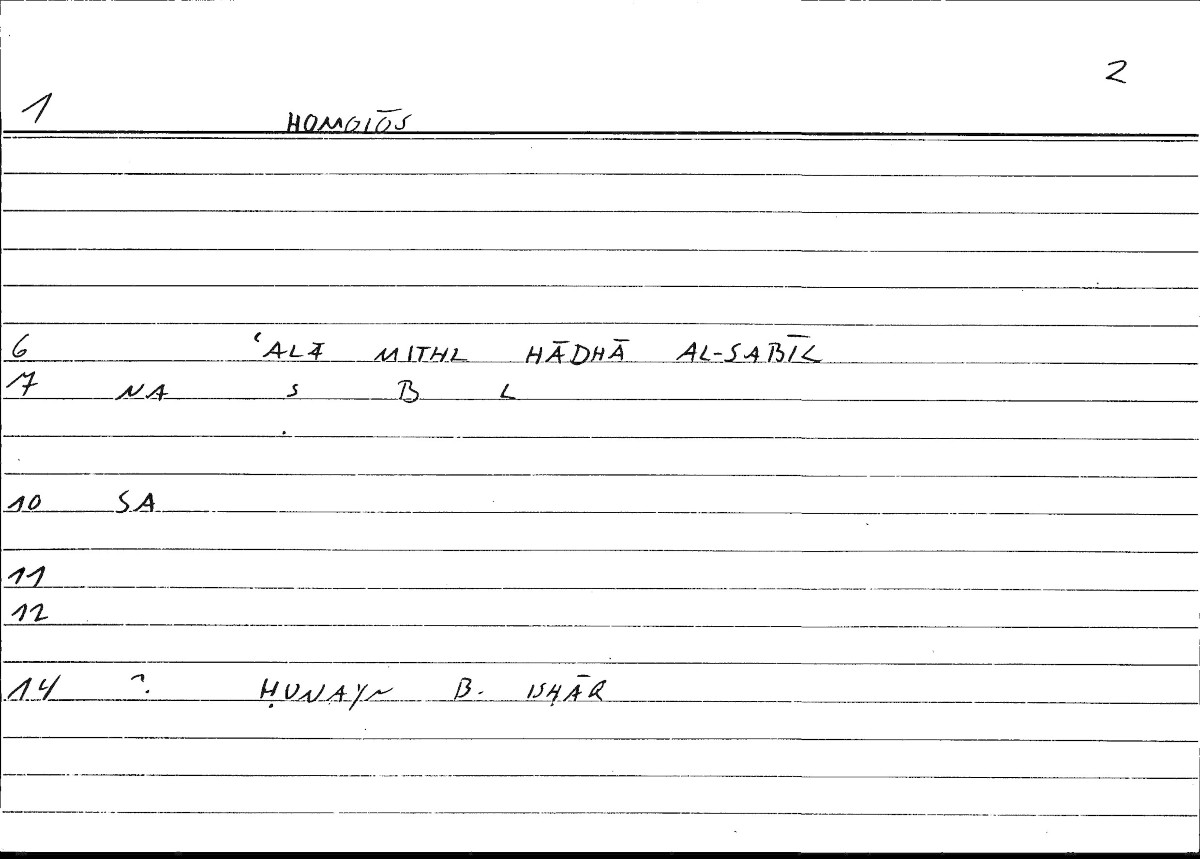 2
1 HOMOIŌS
6 ʿALĀ MITHL HĀDHĀ AL-SABĪL
7 NA S B L
10 SA
11
12
14 ? ḤUNAYN B. ISḤĀQ